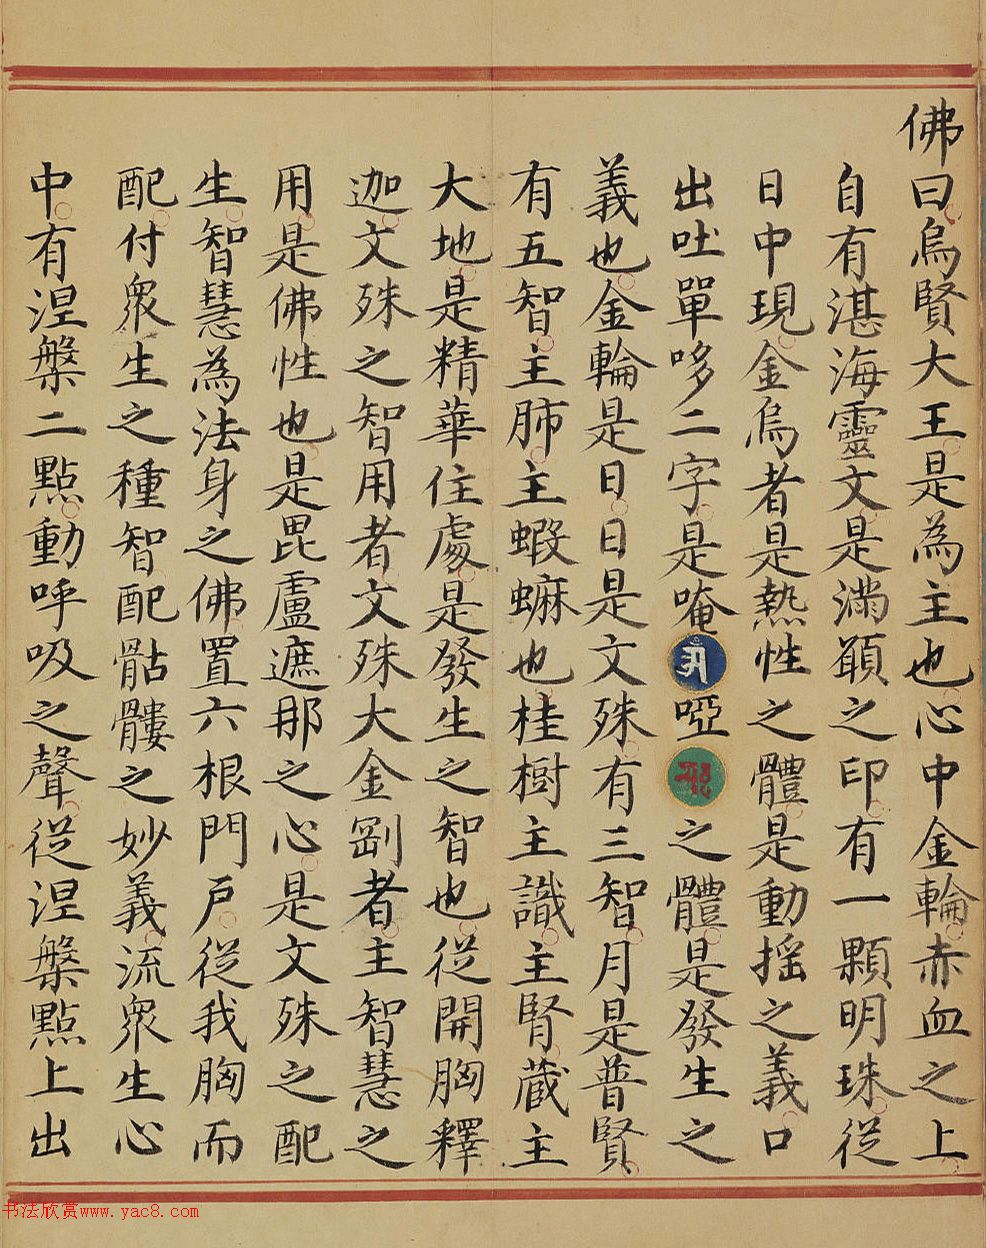 佛曰烏賢大王是為主也心中金輪赤血之上
自有湛海靈文是滿願之印有一顆明珠從
日中現金烏者是熱性之體是動揺之義口
出吐單哆二字是唵啞之體是發生之
義也金輪是日日是文殊有三智月是普賢
有五智主肺主蝦蟆也桂樹主識主腎蔵主
大地是精華住處是發生之智也從開胸釋
迦文殊之智用者文殊大金剛者主智慧之
用是佛性也是毘盧遮那之心是文殊之配
生智慧為法身之佛置六根門戶從我胸而
配付衆生之種智配骷髏之妙義流衆生心
中有涅槃二點動呼吸之聲從涅槃點上出
书法欣赏www.yac8.com